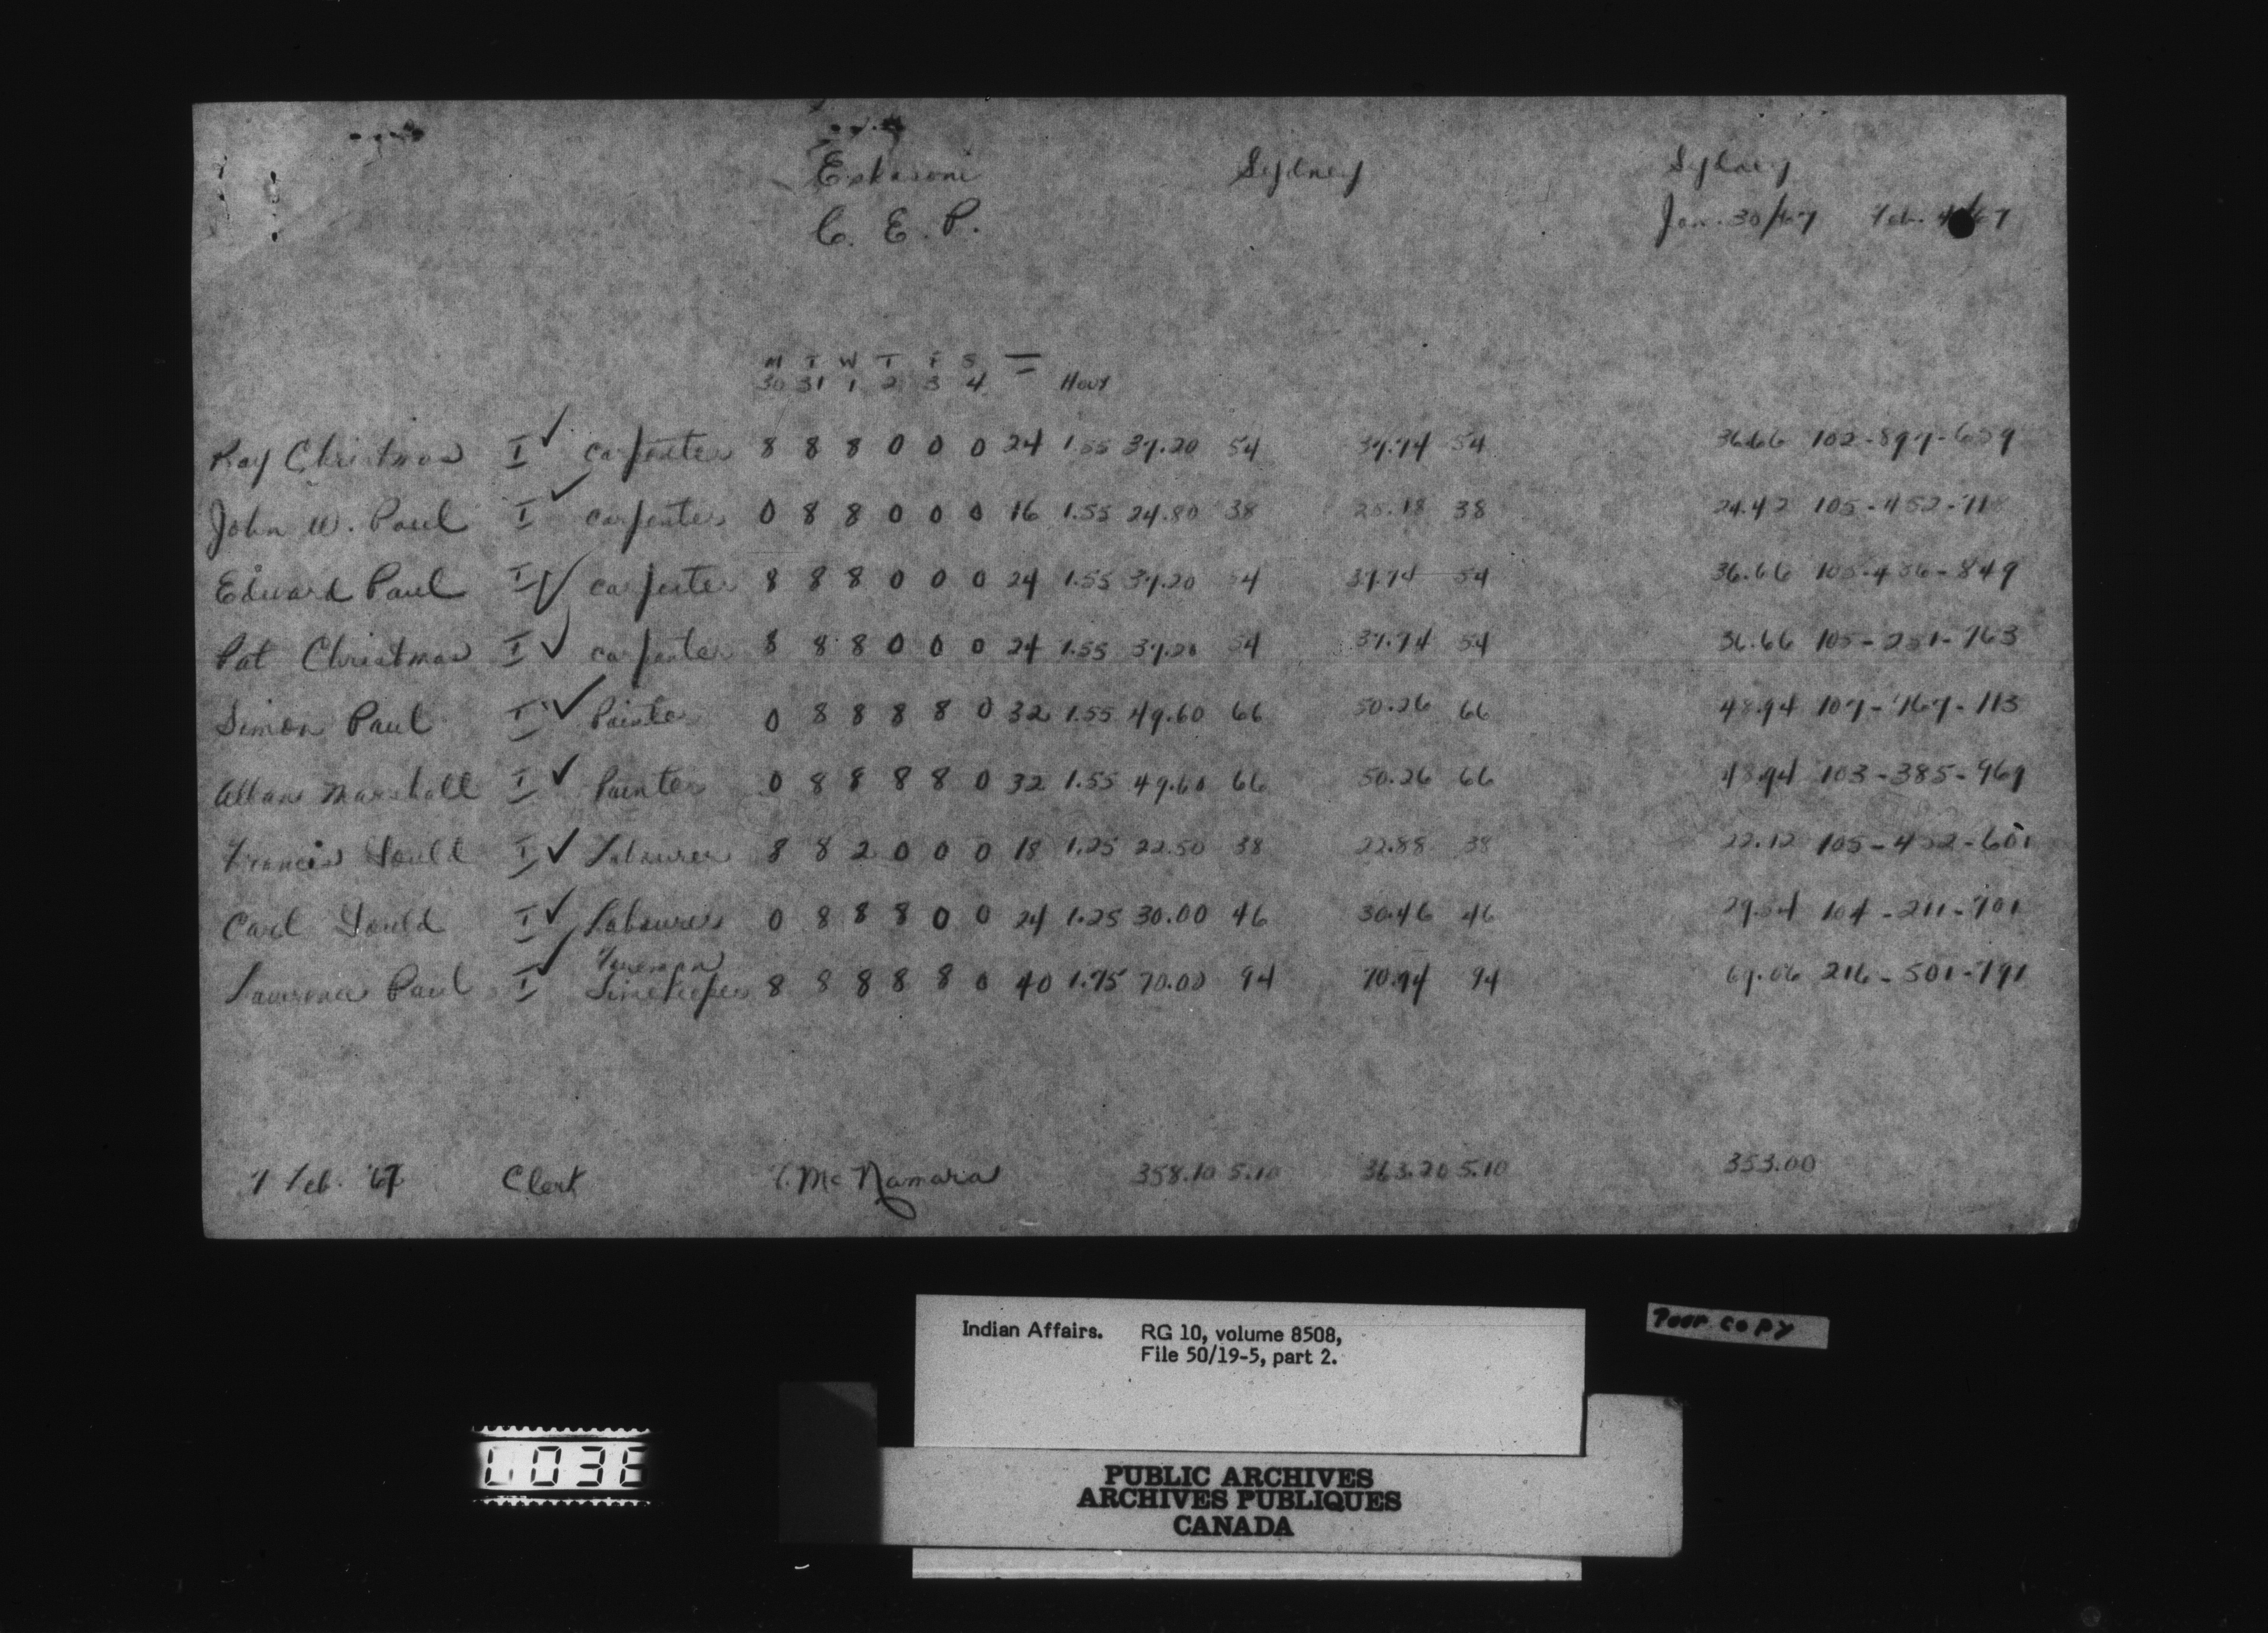 Eskasoni Sydney Sydney
C. E. P. Jan. 30/67 Feb. 4/67
M T W T F S
30 31 1 2 3 4 Hour
Ray Christmas I ✓ carpenter 8 8 8 0 0 0 24 1.55 37.20 54 37.74 54 36.66 102-897-659
John W. Paul I ✓ carpenter 0 8 8 0 0 0 16 1.55 24.80 38 25.18 38 24.42 105-452-
Edward Paul I ✓ carpenter 8 8 8 0 0 0 24 1.55 37.20 54 37.74 54 36.66 105-456-849
Pat Christmas I ✓ carpenter 8 8 8 0 0 0 24 1.55 37.20 54 37.74 54 36.66 105-251-763
Simon Paul I ✓ Painter 0 8 8 8 8 0 32 1.55 49.60 66 50.26 66 48.94 107-767-113
Alban Marshall I ✓ Painter 0 8 8 8 8 0 32 1.55 49.60 66 50.26 66 48.94 103-385-969
Francis Gould I ✓ Labourer 8 8 2 0 0 0 18 1.25 22.50 38 22.88 38 22.12 105-452-601
Carl Gould I ✓ Labourer 0 8 8 8 0 0 24 1.25 30.00 46 30.46 46 29.54 104-211-701
Foreman
Lawrence Paul I ✓ Timekeeper 8 8 8 8 8 0 40 1.75 70.00 94 70.94 94 69.06 216-501-791
7 Feb. '67 Clerk T. McNamara 358.10 5.10 363.20 5.10 353.00
Indian Affairs. RG 10, volume 8508,
File 50/19-5, part 2.
Poor copy
PUBLIC ARCHIVES
ARCHIVES PUBLIQUES
CANADA